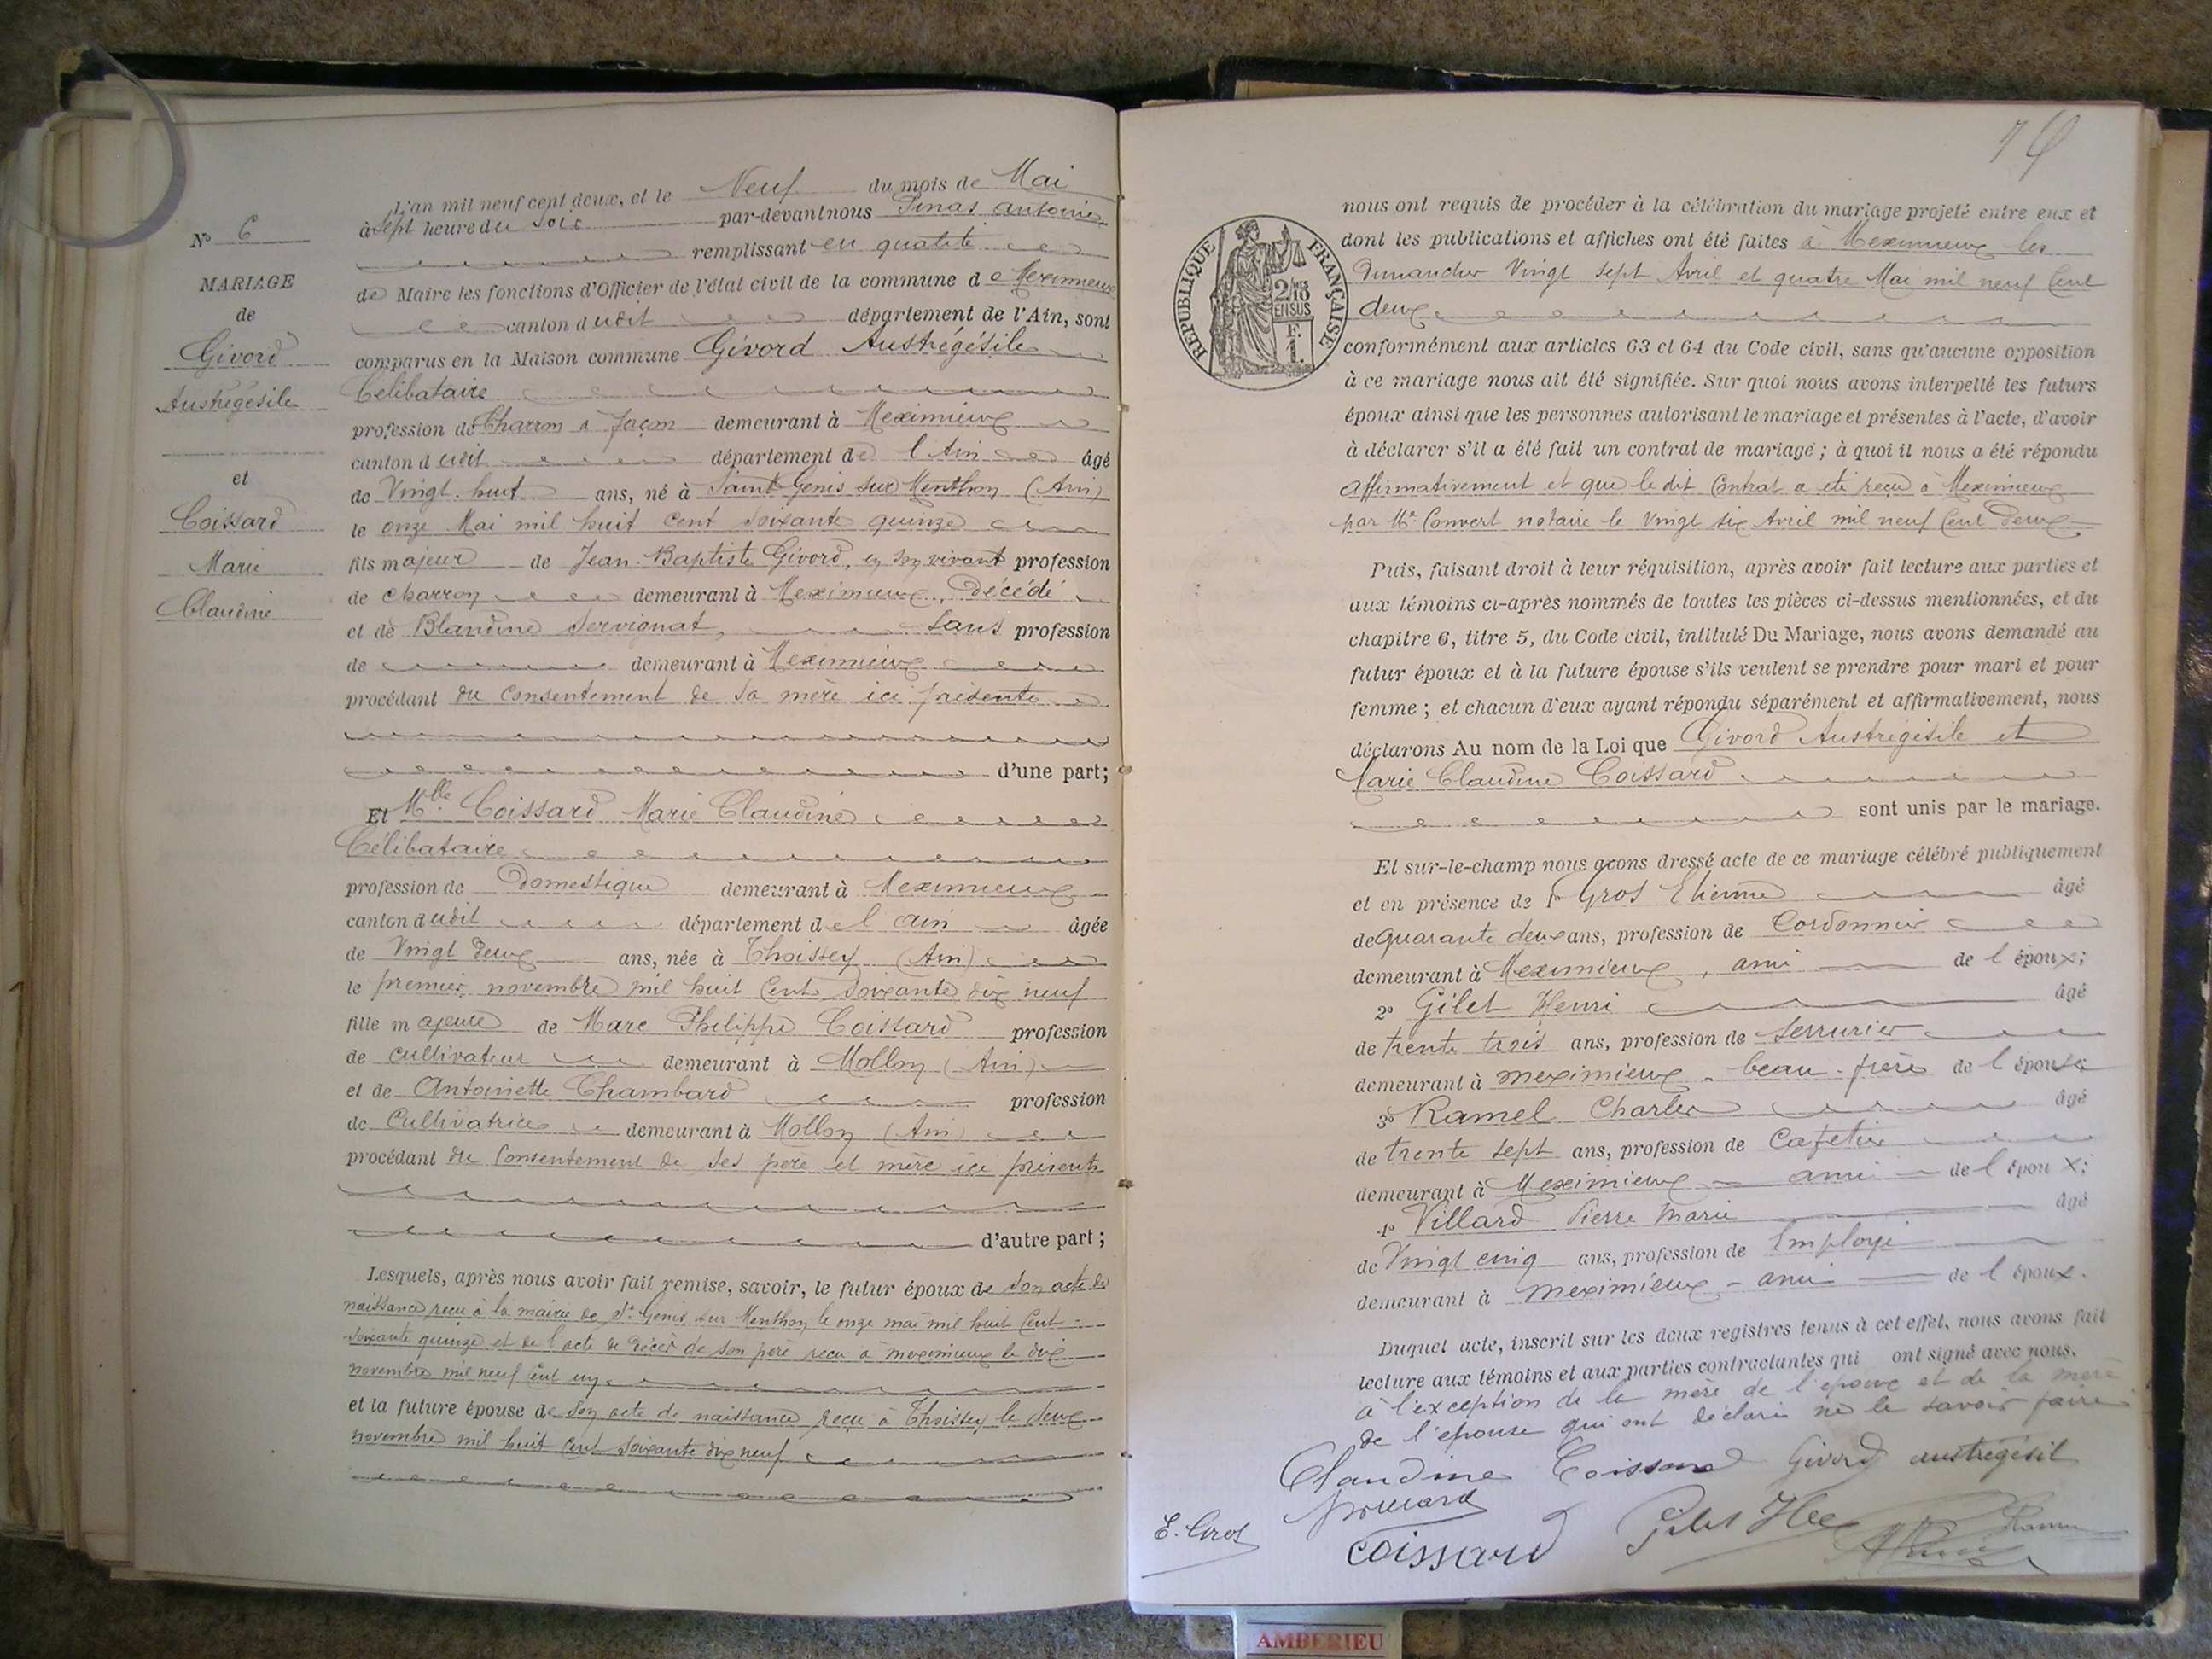 L'an mil neuf cent deux, et le Neuf du mois de Mai
à Sept heure du Soir par-devant nous Pinas Antoine
remplissant en qualité
de Maire les fonctions d'Officier de l'état civil de la commune de Meximieux
canton dudit département de l'Ain, sont
comparus en la Maison commune Givord Austrégésile
Célibataire
profession de Charron à façon demeurant à Meximieux
canton dudit département de l'Ain âgé
de Vingt-huit ans, né à Saint Genis sur Menthon (Ain)
le onze Mai mil huit cent soixante quinze
fils majeur de Jean-Baptiste Givord, en son vivant profession
de charron demeurant à Meximieux, Décédé
et de Blandine Servignat, Sans profession
de demeurant à Meximieux
procédant du consentement de sa mère ici présente
d'une part;
Et Mlle Coissard Marie Claudine
Célibataire
profession de Domestique demeurant à Meximieux
canton dudit département de l'ain âgée
de Vingt deux ans, née à Thoissey (Ain)
le premier novembre mil huit Cent Soixante dix neuf
fille majeure de Marc Philippe Coissard profession
de cultivateur demeurant à Mollon (Ain)
et de Antoinette Chambard profession
de Cultivatrice demeurant à Mollon (Ain)
procédant du Consentement de ses père et mère ici présents
d'autre part;
Lesquels, après nous avoir fait remise, savoir, le futur époux de Son acte de
naissance reçu à la mairie de St Genis sur Menthon le onze mai mil huit Cent
soixante quinze et de l'acte de décès de son père reçu à meximieux le dix
novembre mil neuf cent un
et la future épouse de Son acte de naissance reçu à Thoissey le deux
novembre mil huit cent soixante dix neuf
No 6
MARIAGE
de
Givord
Austrégésile
et
Coissard
Marie
Claudine
RÉPUBLIQUE FRANÇAISE
2/10
EN SUS
F.
1.
nous ont requis de procéder à la célébration du mariage projeté entre eux et
dont les publications et affiches ont été faites à Meximieux les
Dimanches Vingt sept Avril et quatre Mai mil neuf Cent
deux
conformément aux articles 63 et 64 du Code civil, sans qu'aucune opposition
à ce mariage nous ait été signifiée. Sur quoi nous avons interpellé les futurs
époux ainsi que les personnes autorisant le mariage et présentes à l'acte, d'avoir
à déclarer s'il a été fait un contrat de mariage; à quoi il nous a été répondu
affirmativement et que le dit Contrat a été reçu à Meximieux
par Me Convert notaire le Vingt six Avril mil neuf Cent Deux
Puis, faisant droit à leur réquisition, après avoir fait lecture aux parties et
aux témoins ci-après nommés de toutes les pièces ci-dessus mentionnées, et du
chapitre 6, titre 5, du Code civil, intitulé Du Mariage, nous avons demandé au
futur époux et à la future épouse s'ils veulent se prendre pour mari et pour
femme; et chacun d'eux ayant répondu séparément et affirmativement, nous
déclarons Au nom de la Loi que Givord Austrégésile et
Marie Claudine Coissard
sont unis par le mariage.
Et sur-le-champ nous avons dressé acte de ce mariage célébré publiquement
et en présence de 1o Gros Etienne âgé
de quarante deux ans, profession de Cordonnier
demeurant à Meximieux, ami de l'époux;
2o Gilet Henri âgé
de trente trois ans, profession de Serrurier
demeurant à meximieux - beau-frère de l'épouse
3o Ramel Charles âgé
de trente sept ans, profession de Cafetier
demeurant à Meximieux - ami de l'époux;
4o Villard Pierre Marie âgé
de Vingt cinq ans, profession de Employé
demeurant à meximieux - ami de l'époux.
Duquel acte, inscrit sur les deux registres tenus à cet effet, nous avons fait
lecture aux témoins et aux parties contractantes qui ont signé avec nous.
à l'exception de la mère de l'époux et de la mère
de l'épouse qui ont déclaré ne le savoir faire
Claudine Coissard Givord austrégésil
E. Gros
Coissard
Gilet Hee
AMBERIEU